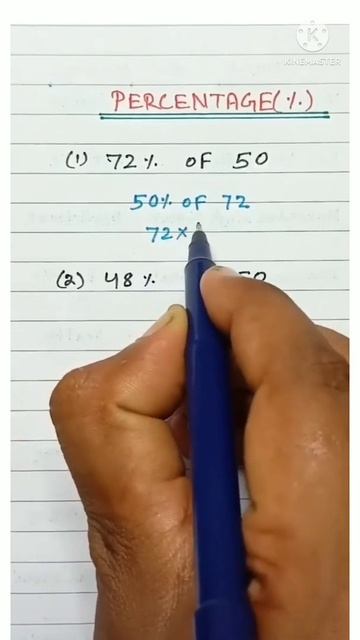 KINEMASTER
PERCENTAGE(%)
(1) 72% OF 50
50% OF 72
72×
(2) 48% 50